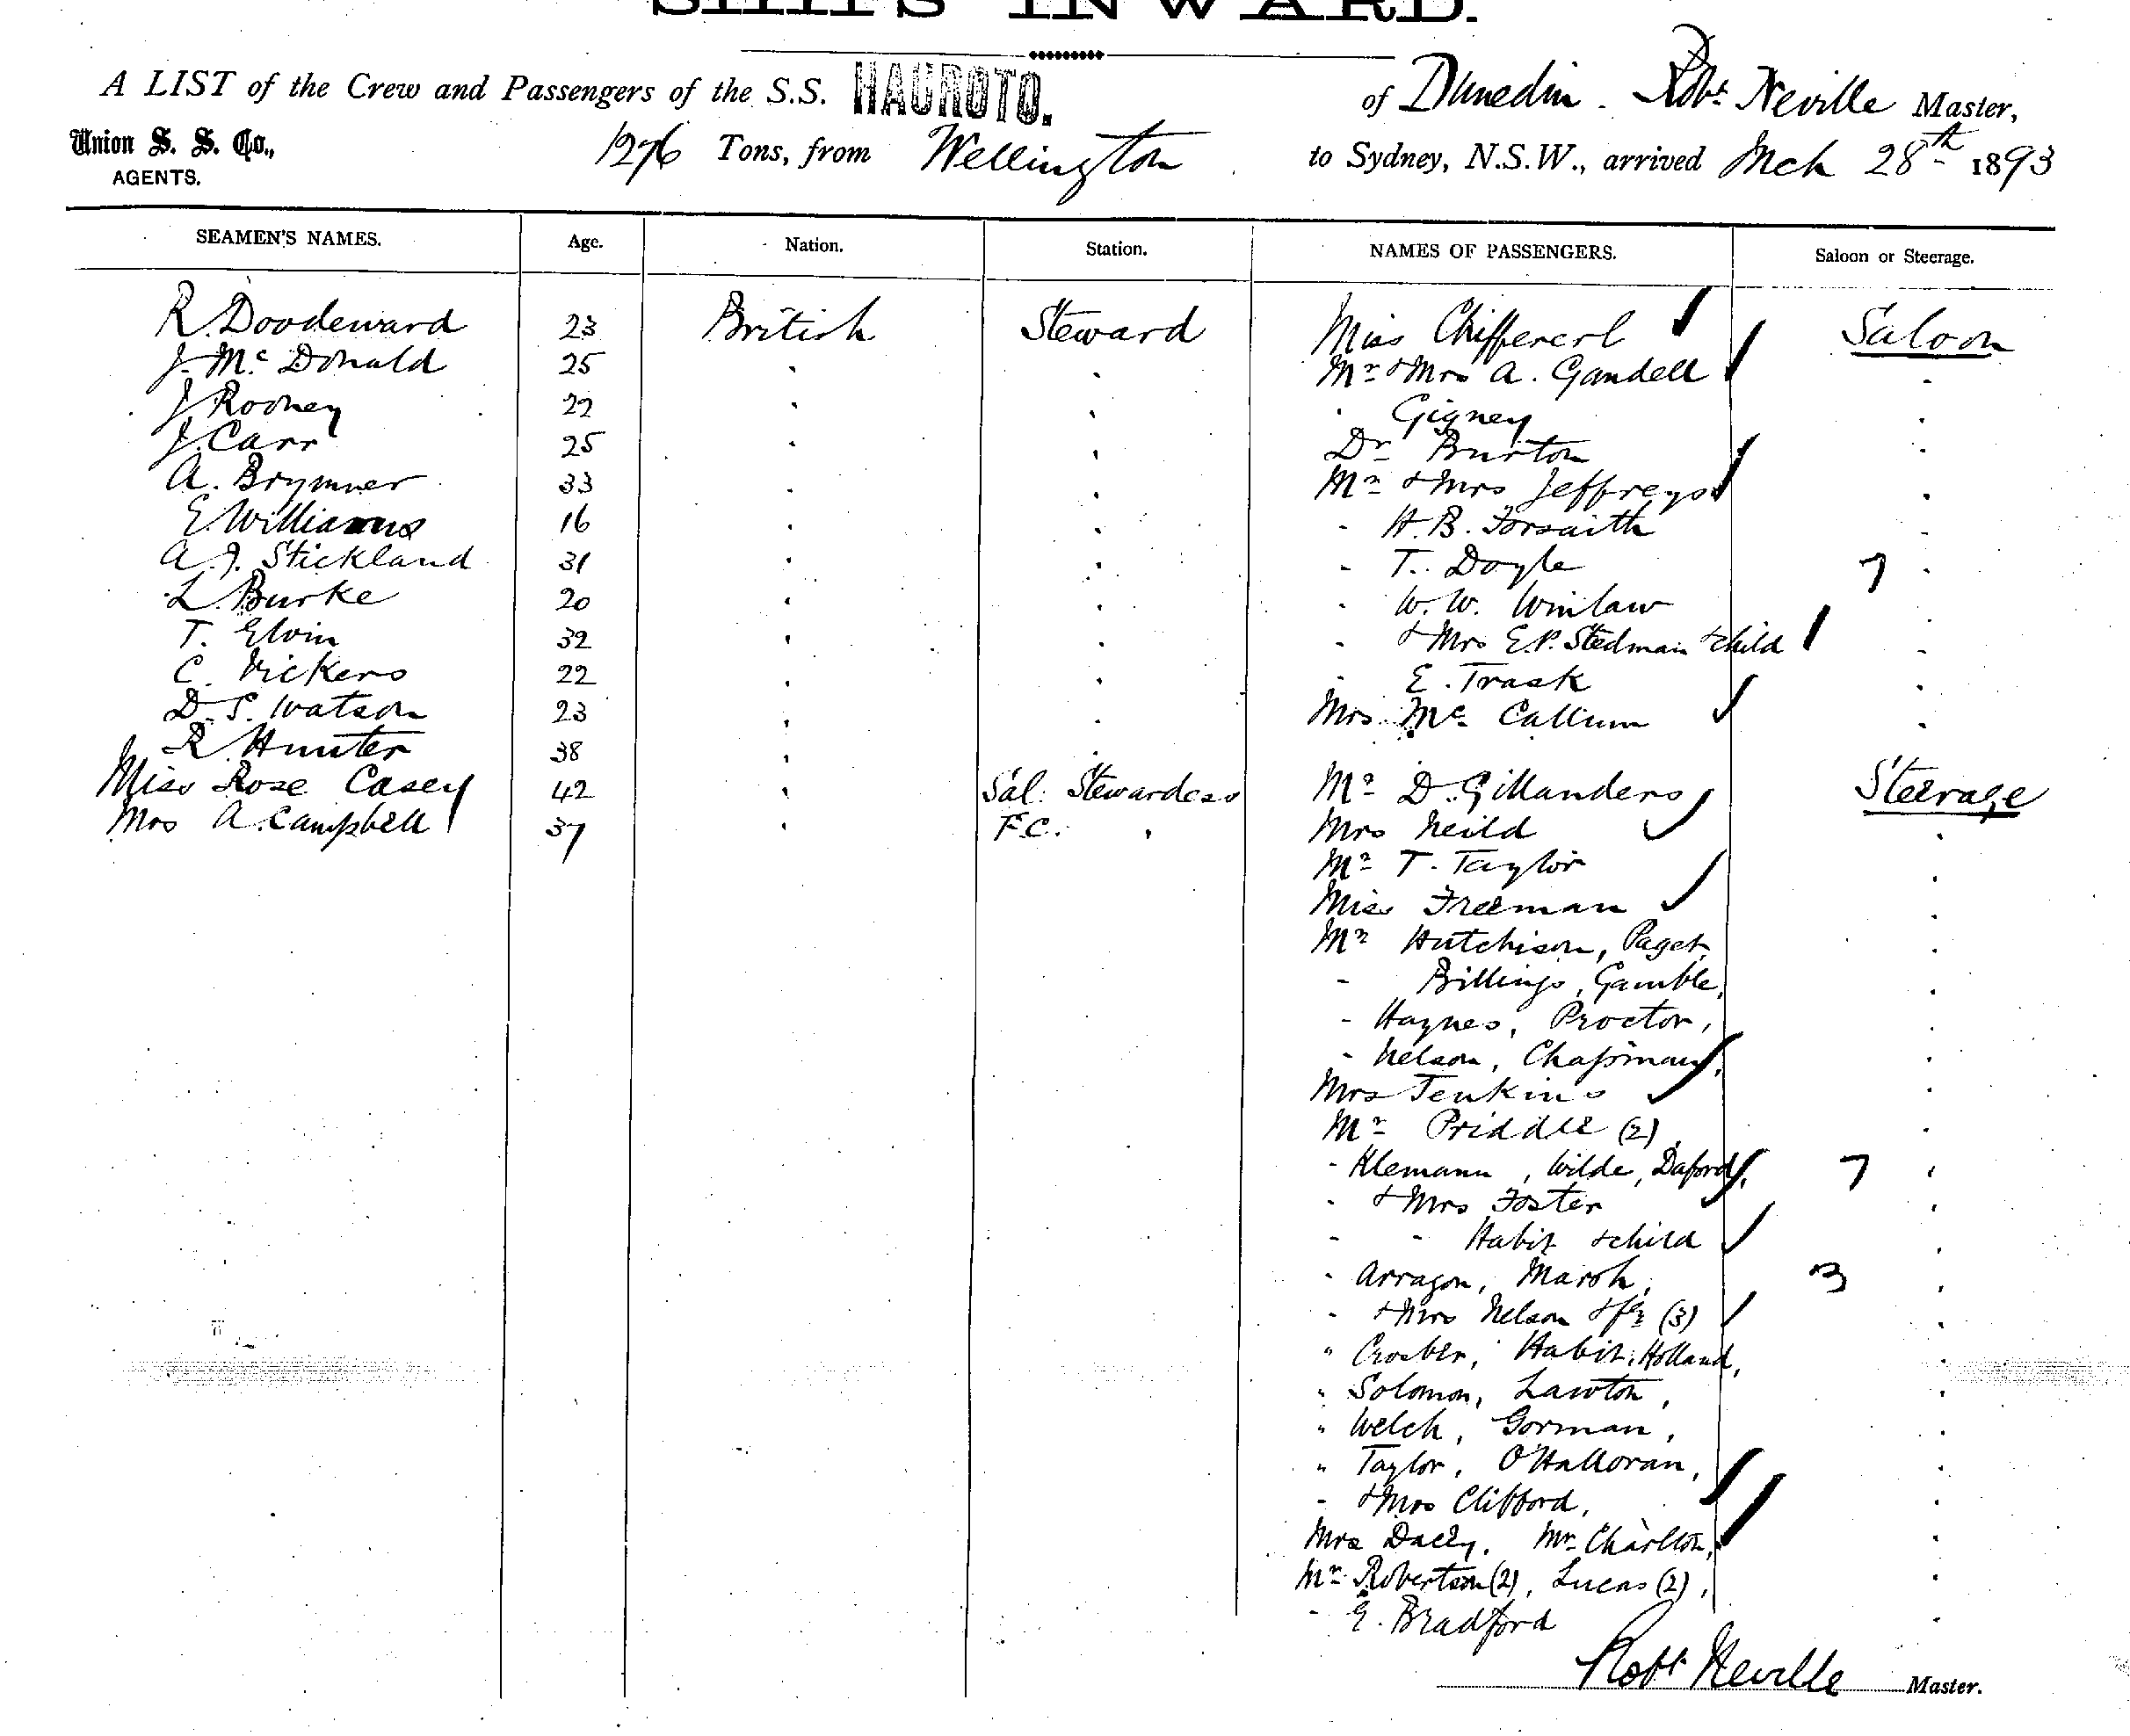 SHIPS INWARD.
A LIST of the Crew and Passengers of the S.S. HAUROTO. of Dunedin. Robt Neville Master,
Union S. S. Co., 1276 Tons, from Wellington to Sydney, N.S.W., arrived Mch 28th 1893
AGENTS.
SEAMEN'S NAMES. Age. Nation. Station. NAMES OF PASSENGERS. Saloon or Steerage.
R. Doodeward 23 British Steward Miss Saloon
J. Mc Donald 25 " " Mr & Mrs A. Gandell "
J. Rooney 22 " " " Gigney "
J. Carr 25 " " Dr Burton "
A. Brymner 33 " " Mr & Mrs Jeffreys "
E. Williams 16 " " - H. B. Forsaith "
A. J. Stickland 31 " " - T. Doyle 7 "
L. Burke 20 " " - W. W. Winlaw "
T. Elvin 32 " " - & Mrs E. P. Stedman & child "
C. Vickers 22 " " - E. Trask "
D. S. Watson 23 " " Mrs Mc Callum "
R. Hunter 38 " "
Miss Rose Casey 42 " Sal. Stewardess Mr D. Gillanders Steerage
Mrs A. Campbell 37 " F.C. " Mrs Neild "
Mr T. Taylor "
Miss Freeman "
Mr Hutchison, Paget, "
- Billings, Gamble, "
- Haynes, Proctor, "
- Nelson, Chapman, "
Mrs Jenkins "
Mr Priddle (2), "
- Klemann, Wilde, 7 "
- & Mrs Foster "
- - Habit & child "
- Arragon, Marsh, 3 "
- & Mrs Nelson & fy (3) "
" Habit, Holland, "
" Solomon, Lawton, "
" Welch, Gorman, "
" Taylor, O'Halloran, "
- & Mrs Clifford, "
Mrs Dacey, Mr Charlton, "
Mr Robertson (2), Lucas (2), "
- E. Bradford "
Robt Neville Master.